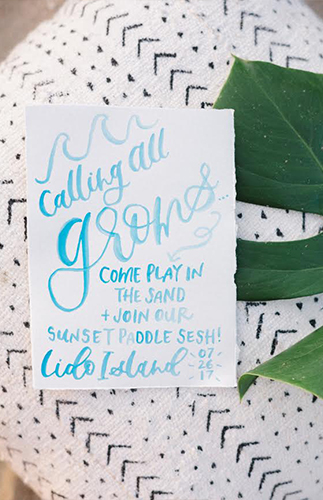 Calling all
groms...
COME PLAY IN
THE SAND
+ JOIN OUR
SUNSET PADDLE SESH!
Lido Island 07
26
17